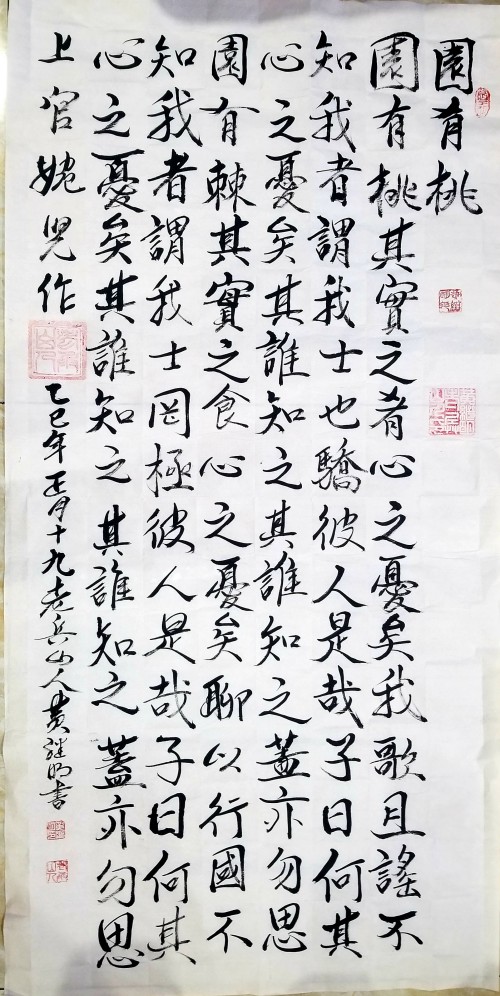 園有桃
園有桃其實之肴心之憂矣我歌且謠不
知我者謂我士也驕彼人是哉子曰何其
心之憂矣其誰知之其誰知之蓋亦勿思
園有棘其實之食心之憂矣聊以行國不
知我者謂我士罔極彼人是哉子曰何其
心之憂矣其誰知之其誰知之蓋亦勿思
上官婉兒作
乙巳年正月十九老兵山人黃継明書